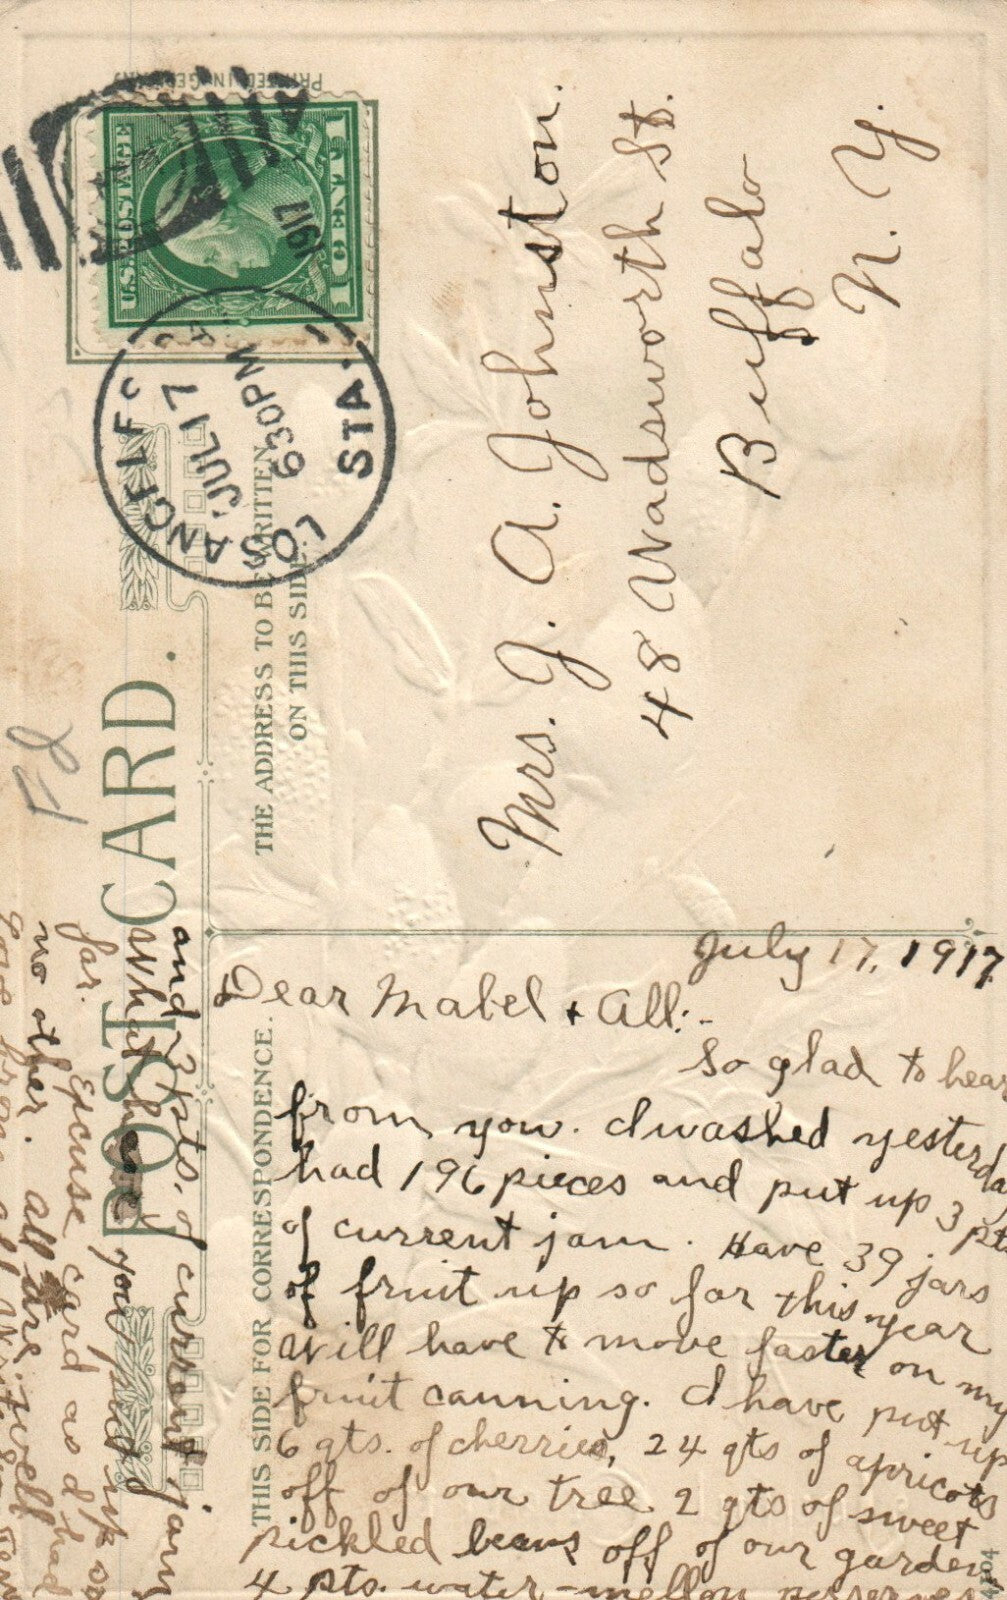 PRINTED IN GERMANY
U.S. POSTAGE
1 CENT 1
1917
LOS ANGELES
JUL 17
630PM
STA.
POST CARD.
THE ADDRESS TO BE WRITTEN
ON THIS SIDE.
Mrs. J. A. Johnston.
48 Wadsworth St.
Buffalo
N. Y.
THIS SIDE FOR CORRESPONDENCE.
July 17, 1917
Dear Mabel + All:-
So glad to hear
from you. I washed yesterday
had 196 pieces and put up 3 pts
of current jam. Have 39 jars
of fruit up so far this year
Will have to move faster on my
fruit canning. I have put up
6 qts. of cherries, 24 qts of apricots
off of our tree 2 qts of sweet
pickled beans off of our garden
4 pts. water-mellon perserves
and 3 pts. of current jam
What have you put up so
far. Excuse card as I had
no other. All are well
Love from